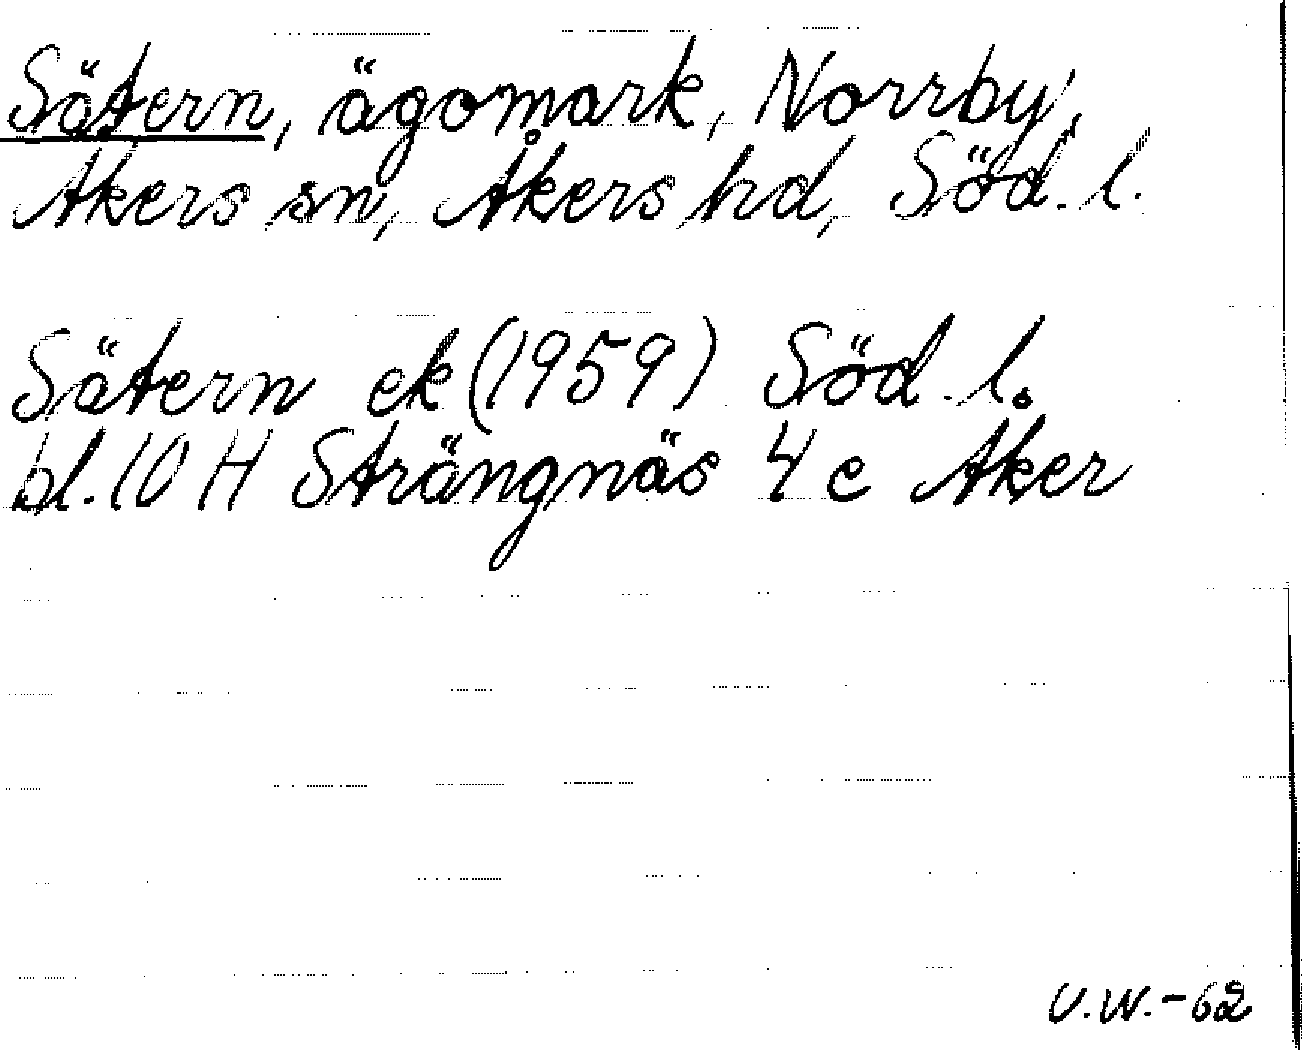 Sätern, ägomark, Norrby,
Åkers sn, Åkers hd, Söd. l.
Sätern ek (1959) Söd. l.
bl. 10 H Strängnäs 4 c Åker
U.W.-62